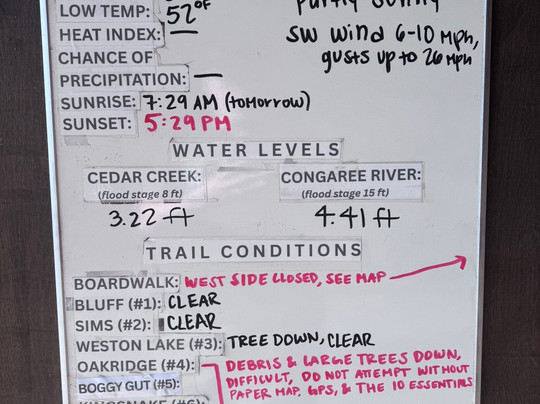 LOW TEMP: 52°F
HEAT INDEX: —
SW WIND 6-10 MPH,
CHANCE OF
gusts up to 26 MPH
PRECIPITATION: —
SUNRISE: 7:29 AM (tomorrow)
SUNSET: 5:29 PM
WATER LEVELS
CEDAR CREEK: CONGAREE RIVER:
(flood stage 8 ft) (flood stage 15 ft)
3.22 ft 4.41 ft
TRAIL CONDITIONS
BOARDWALK: WEST SIDE CLOSED, SEE MAP
BLUFF (#1): CLEAR
SIMS (#2): CLEAR
WESTON LAKE (#3): TREE DOWN, CLEAR
OAKRIDGE (#4): DEBRIS & LARGE TREES DOWN,
BOGGY GUT (#5): DIFFICULT, DO NOT ATTEMPT WITHOUT
PAPER MAP, GPS, & THE 10 ESSENTIALS